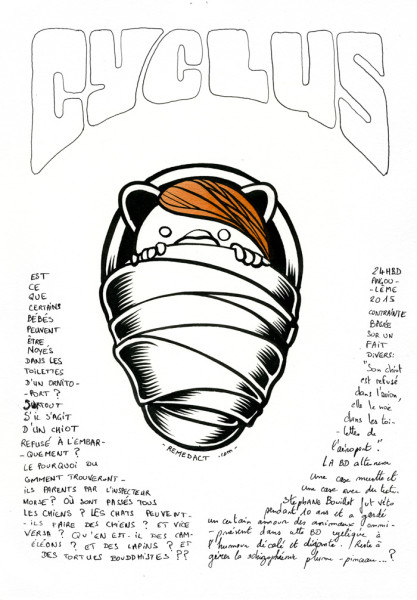 CYCLUS
EST
CE
QUE
CERTAINS
BÉBÉS
PEUVENT
ÊTRE
NOYÉS
DANS LES
TOILETTES
D'UN ORNITO-
-PORT ?
SURTOUT
S'IL S'AGIT
D'UN CHIOT
REFUSÉ À L'EMBAR-
-QUEMENT ?
LE POURQUOI DU
COMMENT TROUVERONT-
ILS PARENTS PAR L'INSPECTEUR
MORSE ? OÙ SONT PASSÉS TOUS
LES CHIENS ? LES CHATS PEUVENT-
-ILS FAIRE DES CHIENS ? ET VICE
VERSA ? QU'EN EST-IL DES CAM-
ÉLÉONS ? ET DES LAPINS ? ET
DES TORTUES BOUDDHISTES ??
- REMEDACT .com -
24HBD
ANGOU-
-LÊME
2015
CONTRAINTE
BASÉE
SUR UN
FAIT
DIVERS:
"Son chiot
est refusé
dans l'avion,
elle le noie
dans les toi-
-lettes de
l'aéroport."
LA BD alternera
une case muette et
une case avec du texte.
Stéphane Bouillot fut véto
pendant 10 ans et a gardé
un certain amour des animaux omni-
-présent dans cette BD cyclique à
l'humour décalé et déjanté. Reste à
gérer la schizophrénie plume-pinceau...?